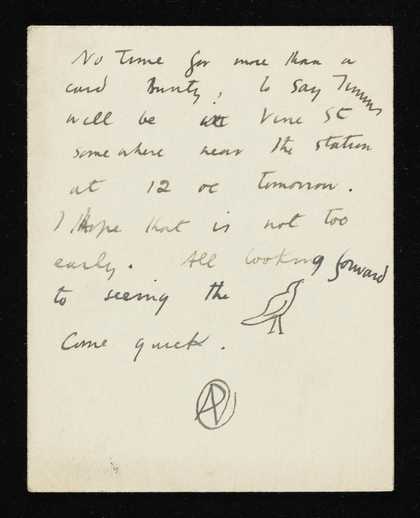 No time for more than a
card Bunty, to say Timms
will be at Vine St
somewhere near the station
at 12 oc tomorrow.
I Hope that is not too
early. All looking forward
to seeing the
Come quick.